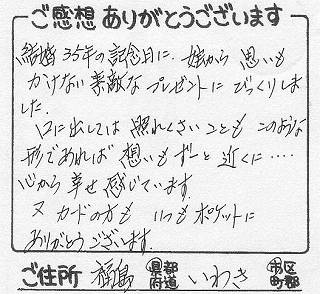 ご感想ありがとうございます
結婚35年の記念日に、娘から思いも
かけない素敵なプレゼントにびっくりしま
した。
口に出しては照れくさいことも このような
形であれば 想いもずーと近くに‥‥
心から幸せ感じています。
又カードの方も いつもポケットに
ありがとうございます。
ご住所 福島 都道府県 いわき 市区町郡